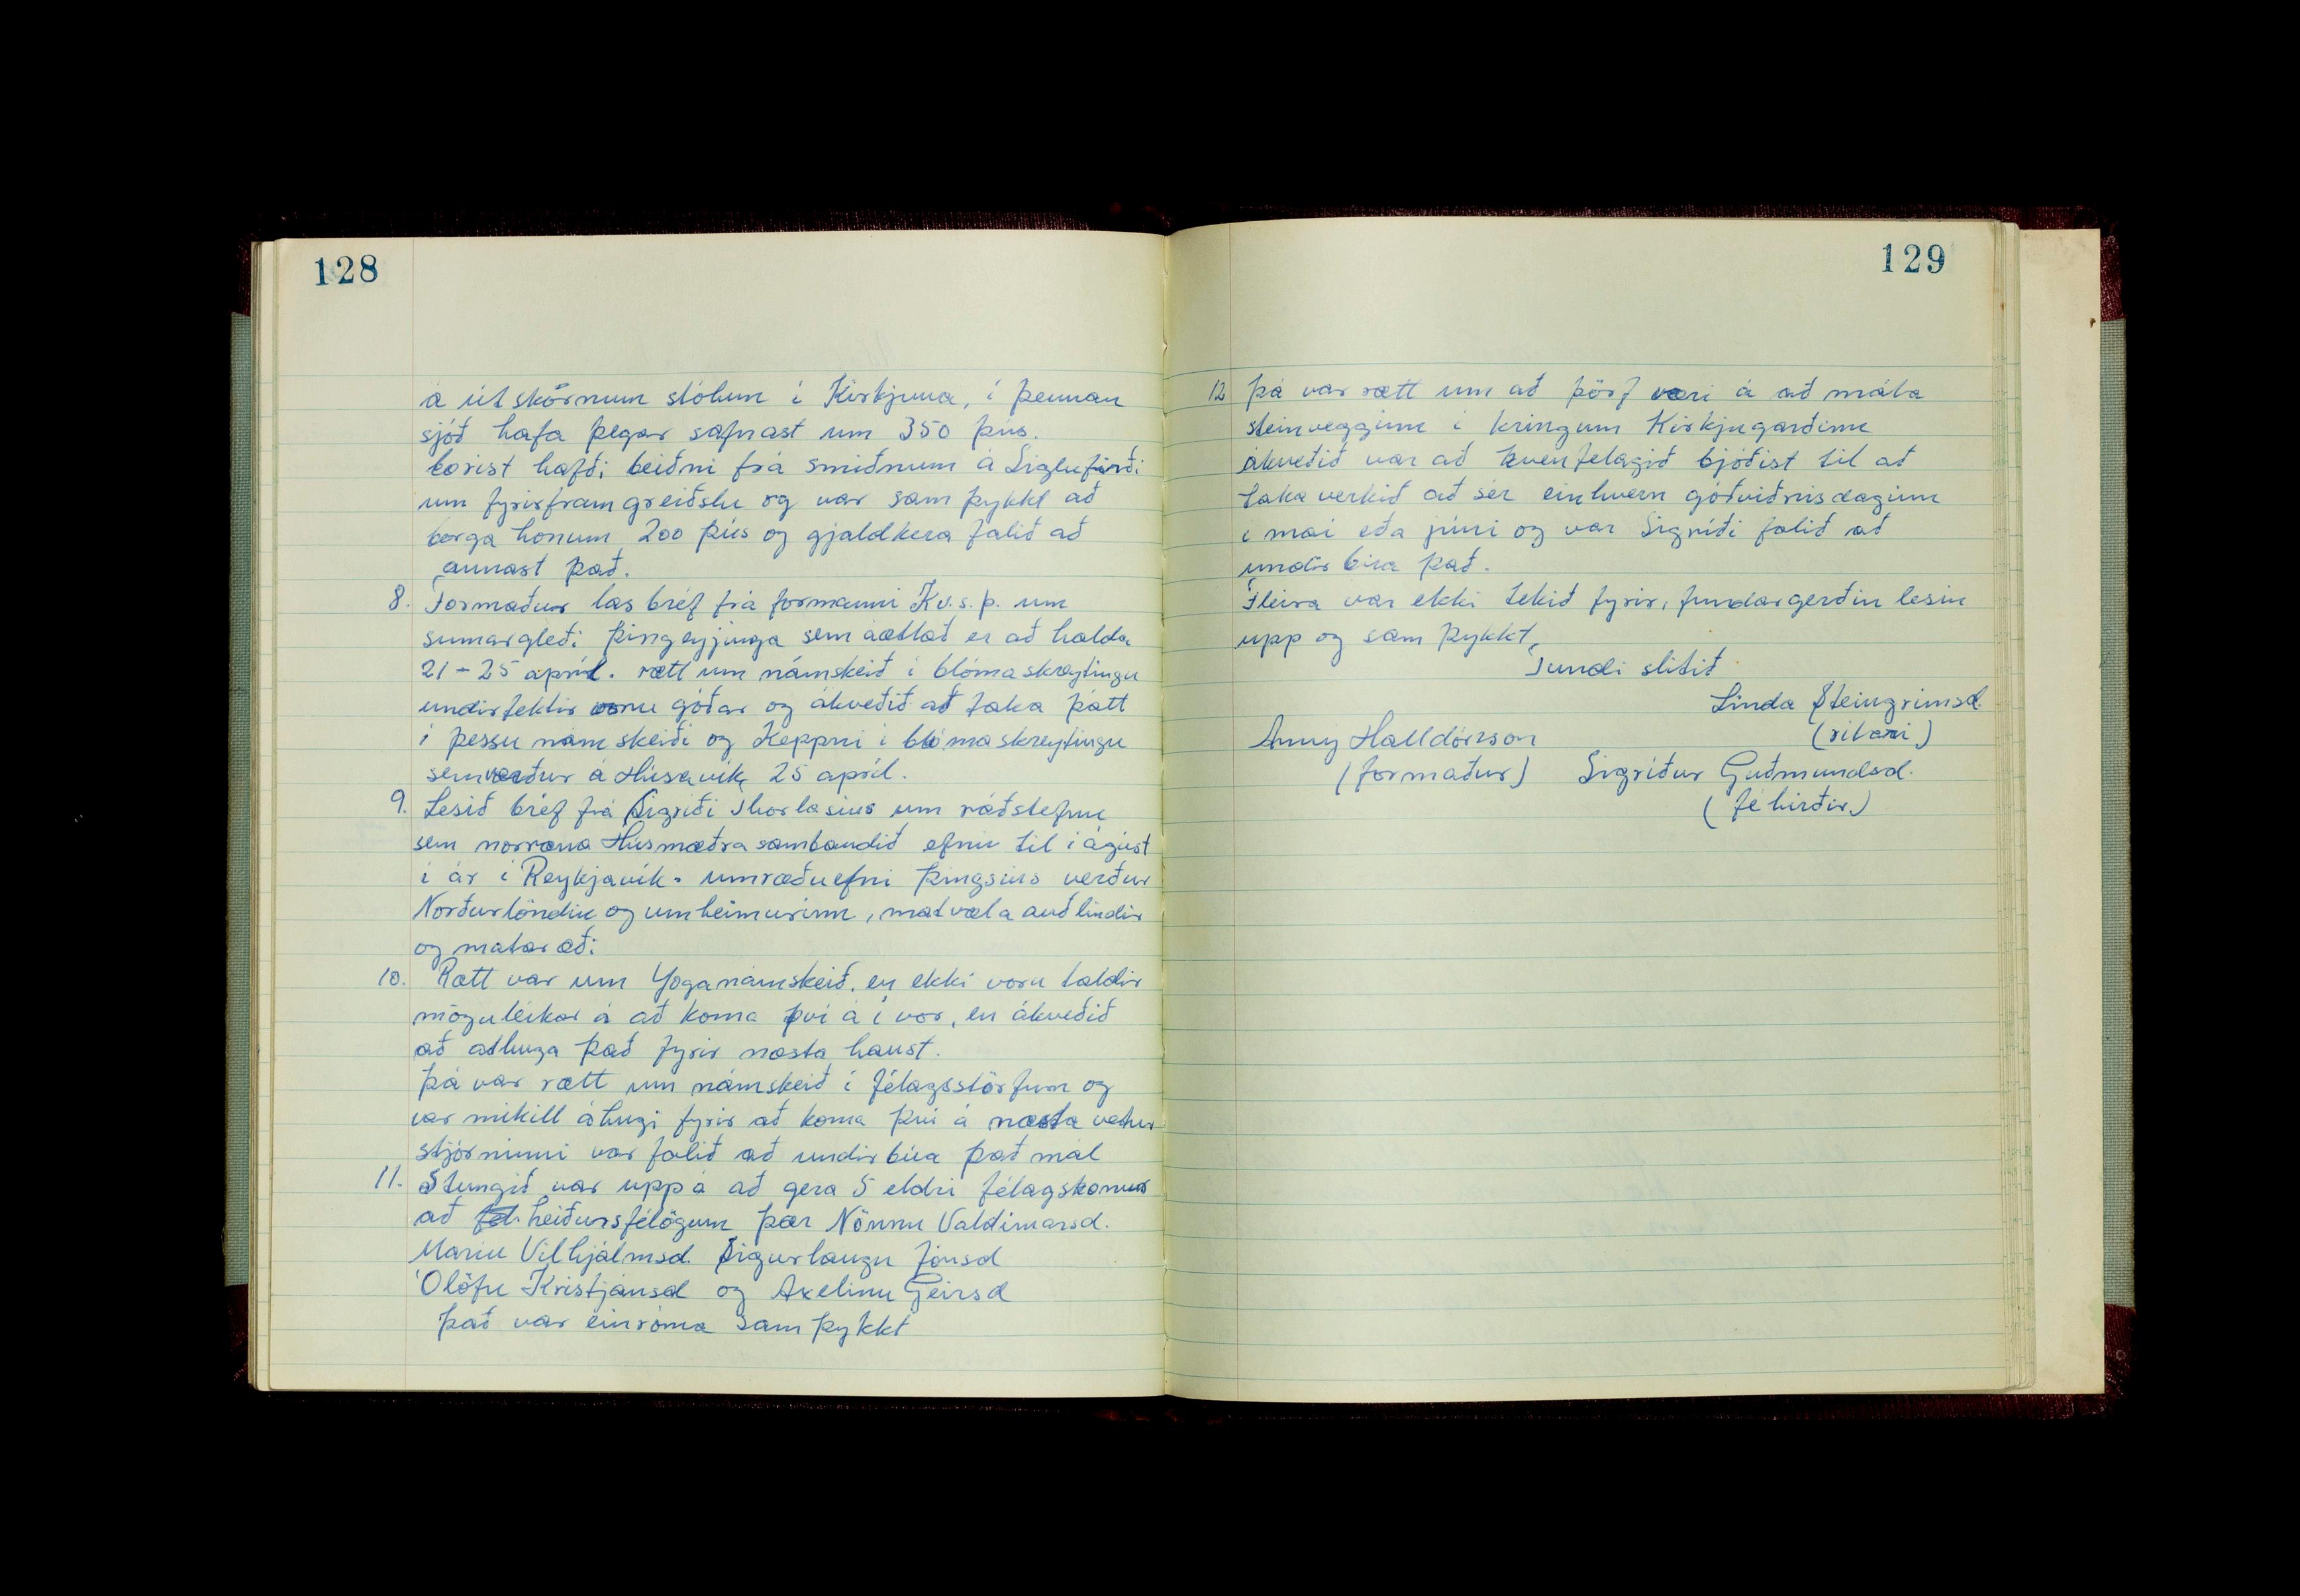 128
á útskörnum stólum í Kirkjuna, í þennan
sjóð hafa þegar safnast um 350 þús.
borist hafði beiðni frá smiðnum á Siglufirði
um fyrirframgreiðslu og var samþykkt að
borga honum 200 þús og gjaldkera falið að
annast það.
8. Formaður las bréf frá formanni Kv.s.þ. um
sumargleði Þingeyjinga sem áætlað er að halda
21-25 apríl. rætt um námskeið í blómaskreytingu
undirtektir voru góðar og ákveðið að taka þátt
í þessu námskeiði og Keppni í blómaskreytingu
sem verður á Húsavík, 25 apríl.
9. Lesið bréf frá Sigríði Thorlasius um ráðstefnu
sem norræna Húsmæðrasambandið efnir til í ágúst
í ár í Reykjavík. umræðuefni þingsins verður
Norðurlöndin og umheimurinn, matvæla auðlindir
og mataræði
10. Rætt var um Yoganámskeið, en ekki voru taldir
möguleikar á að koma því á í vor, en ákveðið
að athuga það fyrir næsta haust.
þá var rætt um námskeið í félagsstörfum og
var mikill áhugi fyrir að koma því á næsta vetur
stjórninni var falið að undirbúa það mál
11. Stungið var uppá að gera 5 eldri félagskonur
að fél. heiðursfélögum þær Nönnu Valdimarsd.
Maríu Vilhjálmsd. Sigurlaugu Jónsd
Ólöfu Kristjánsd og Axelinu Geirsd
það var einróma samþykkt
129
12 þá var rætt um að þörf væri á að mála
steinvegginn í kringum Kirkjugarðinn
ákveðið var að kvenfelagið bjóðist til að
taka verkið að sér einhvern góðviðrisdaginn
í maí eða júní og var Sigríði falið að
undirbúa það.
Fleira var ekki tekið fyrir, fundargerðin lesin
upp og samþykkt,
Fundi slitið
Linda Steingrímsd.
(ritari)
Anny Halldórsson
(formaður) Sigríður Guðmundsd.
(féhirðir)